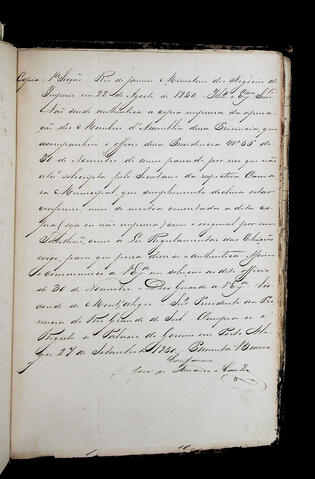 Copia - 1ª Secção - Rio de Janeiro Ministerio dos Negócios do
Imperio em 22 de Agosto de 1850 - Illmo e Exmo Snr
Não sendo authentica a copia impressa da apura-
ção dos Membros d'Assemblea dessa Provincia, que
acompanhou o officio dessa Presidencia Nº 55 de
30 de Novembro do anno passado, por isso que não
está subscripta pelo Secretario da respectiva Cama-
ra Municipal, que simplesmente declara estar
conforme, nem se mostra consertada a dita co-
pia (seja ou não impressa) com o original por um
Tabellião, como a Lei Regulamentar das Eleições
exige, para que possa dizer-se authentica; assim
o communico a V Exª em solução ao dito officio
de 30 de Novembro - Deos Guarde a V Exª Vis
conde de Mont'alegre Snr Presidente da Pro
vincia do Rio Grande do Sul. Cumpra-se e
Registe-se Palacio do Governo em Porto Ale
gre 27 de Setembro de 1850. Pimenta Bueno
Conforme
José de